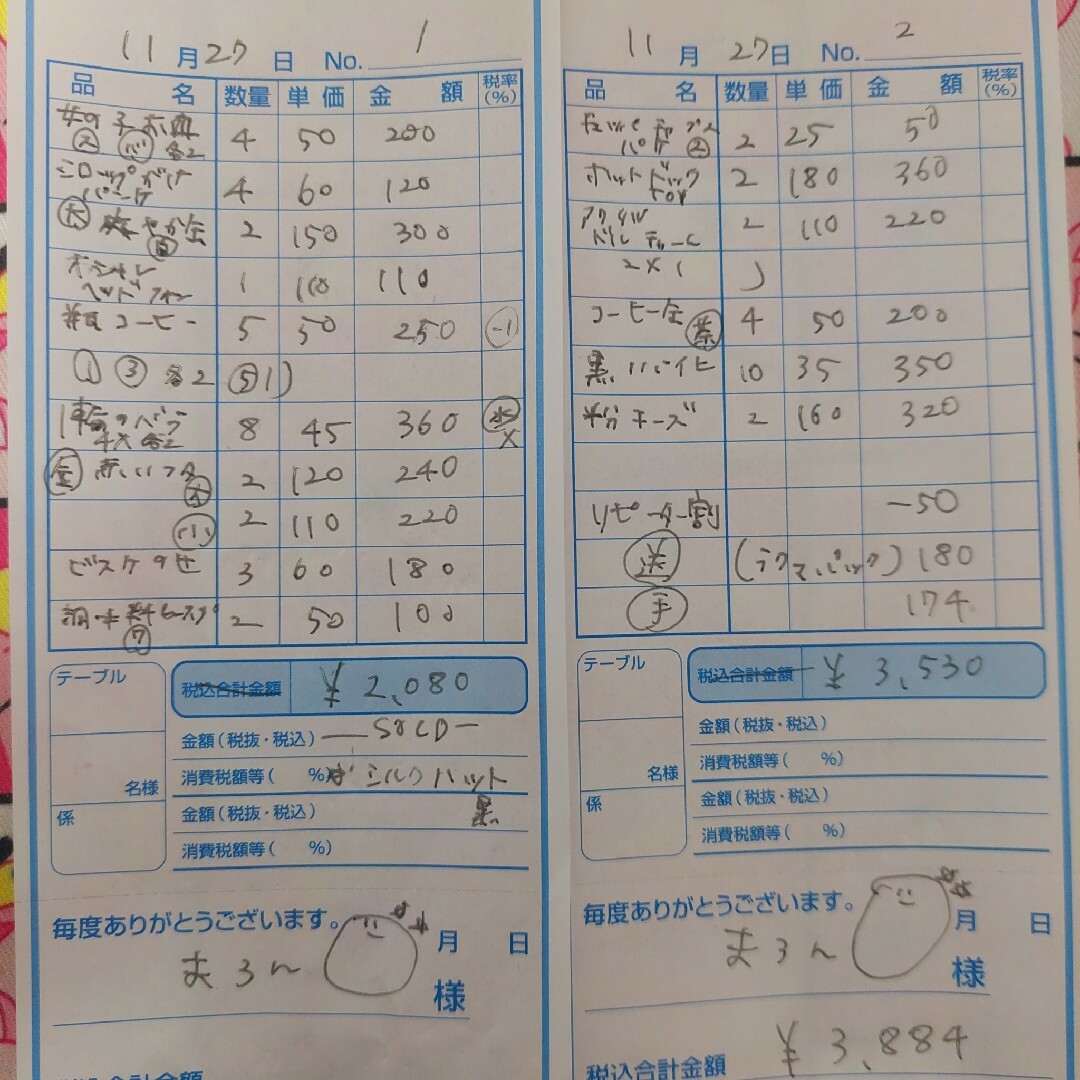 11月27日 No. 1
品名 数量 単価 金額 税率(%)
4 50 200
② ㊌ 各2
シロップがけ
4 60 120
2 150 300
オシャレ
ヘッドフォン
1 110 110
コーヒー 5 50 250 -1
① ③ 各2 ⑤1)
1輪のバラ
8 45 360 ㊌
4大各2 X
㊎ 赤いフタ ㊅ 2 120 240
小 2 110 220
ビスケサセ 3 60 180
2 50 100
⑦
テーブル
名様
係
税込合計金額 ¥2,080
金額(税抜・税込) ーSOLDー
消費税額等( %) シルクハット
金額(税抜・税込) 黒
消費税額等( %)
毎度ありがとうございます。
月 日
まろん 様
11月27日 No. 2
品名 数量 単価 金額 税率(%)
2 25 50
②
ホットドック
2 180 360
アクリル
2 110 220
2×1 )
コーヒー缶 ㊍ 4 50 200
黒ハイヒ 10 35 350
粉チーズ 2 160 320
リピーター割 -50
送 (ラクマパック) 180
手 174
テーブル
名様
係
税込合計金額 ¥3,530
金額(税抜・税込)
消費税額等( %)
金額(税抜・税込)
消費税額等( %)
毎度ありがとうございます。
月 日
まろん 様
税込合計金額 ¥3,884
税込合計金額